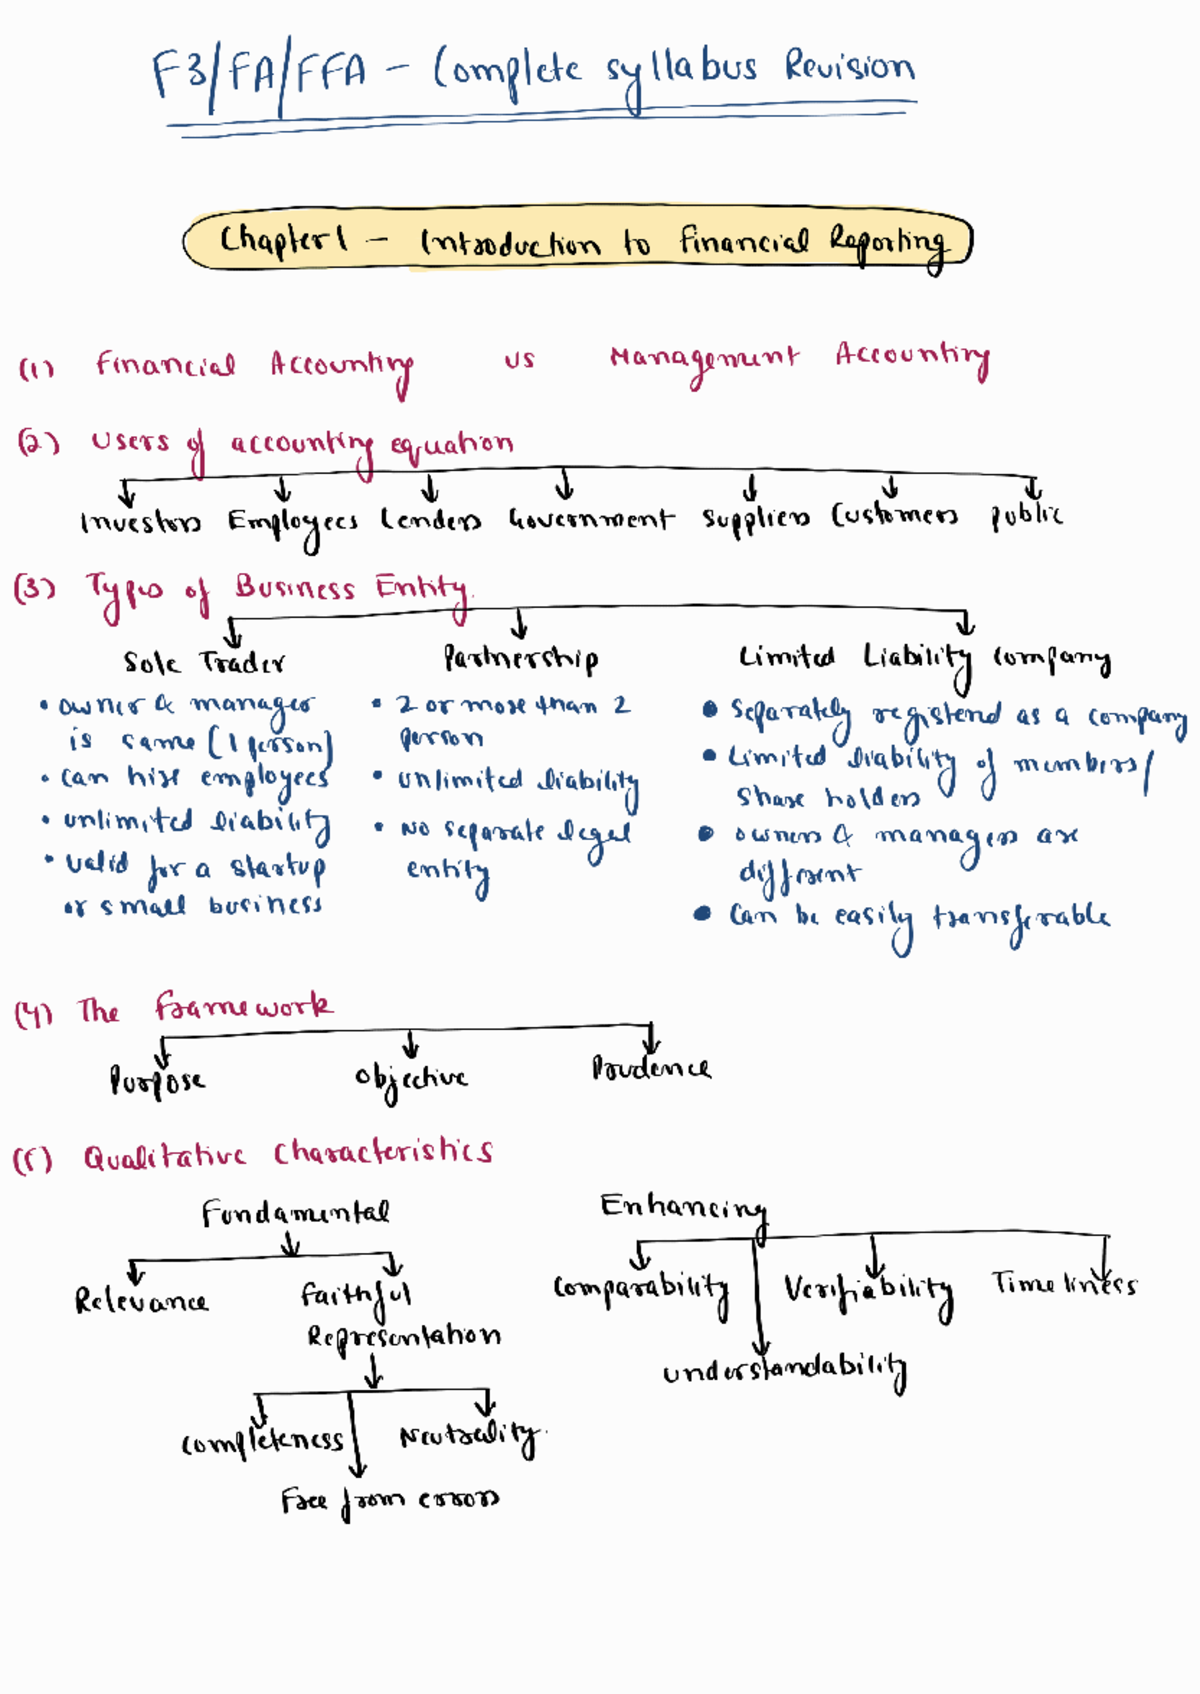 F3/FA/FFA - Complete syllabus Revision
Chapter 1 - Introduction to Financial Reporting
(1) Financial Accounting vs Management Accounting
(2) Users of accounting equation
Investors Employees Lenders Government Suppliers Customers Public
(3) Types of Business Entity.
Sole Trader
• owner & manager
is same (1 person)
• can hire employees
• unlimited liability
• valid for a startup
or small business
Partnership
• 2 or more than 2
person
• unlimited liability
• No separate legal
entity
Limited Liability Company
• Separately registered as a company
• Limited liability of members/
Share holders
• owners & managers are
different
• Can be easily transferable
(4) The Framework
Purpose Objective Prudence
(5) Qualitative Characteristics
Fundamental
Relevance Faithful
Representation
Completeness Neutrality.
Free from errors
Enhancing
Comparability Verifiability Timeliness
understandability